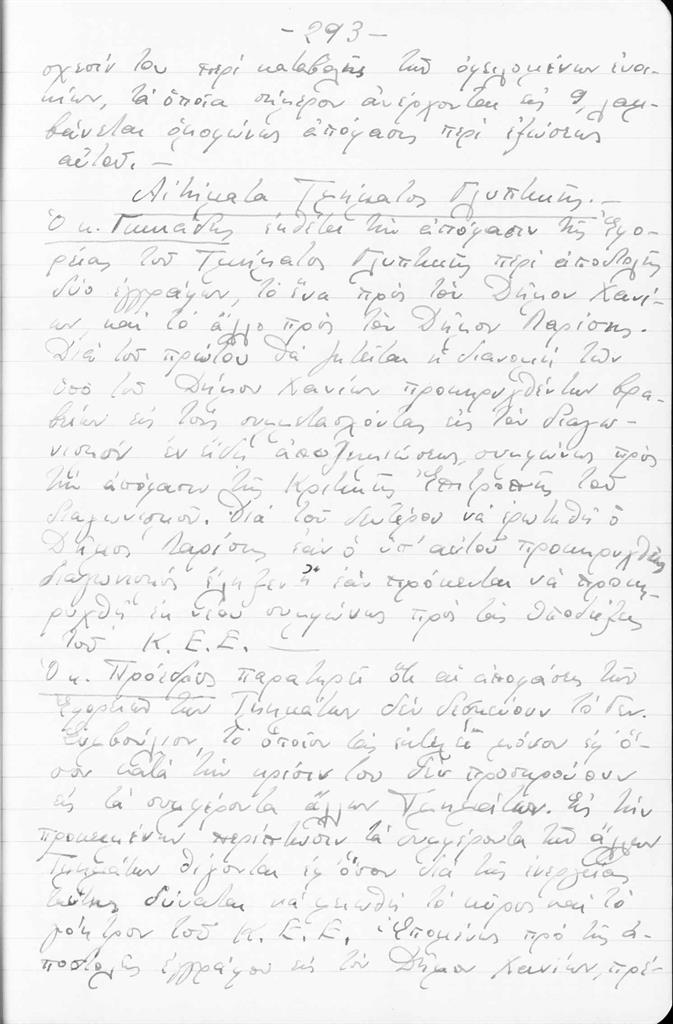 - 293 -
σχεσίν του περί καταβολῆς τῶν ὀφειλομένων ἐνοι-
κίων, τά ὁποῖα σήμερον ἀνέρχονται εἰς 9, λαμ-
βάνεται ὁμοφώνως ἀπόφασις περί ἐξώσεως
αὐτοῦ. -
Αἰτήματα Τμήματος Γλυπτικῆς. -
Ὁ κ. ἐκθέτει τήν ἀπόφασιν τῆς Ἐφο-
ρείας τοῦ Τμήματος Γλυπτικῆς περί ἀποστολῆς
δύο ἐγγράφων, τό ἕνα πρός τόν Δῆμον Χανί-
ων, καί τό ἄλλο πρός τόν Δῆμον Λαρίσης.
Διά τοῦ πρώτου θά ζητεῖται ἡ διανομή τῶν
ὑπό τοῦ Δήμου Χανίων προκηρυχθέντων βρα-
βείων εἰς τούς συμμετασχόντας εἰς τόν διαγω-
νισμόν ἐν εἴδει ἀποζημιώσεως, συμφώνως πρός
τήν ἀπόφασιν τῆς Κριτικῆς Ἐπιτροπῆς τοῦ
διαγωνισμοῦ. Διά τοῦ δευτέρου νά ἐρωτηθῇ ὁ
Δῆμος Λαρίσης ἐάν ὁ ὑπ' αὐτοῦ προκηρυχθείς
διαγωνισμός ἔληξεν ἤ ἐάν πρόκειται νά προκη-
ρυχθῇ ἐκ νέου συμφώνως πρός τάς ὑποδείξεις
τοῦ Κ.Ε.Ε. —
Ὁ κ. Πρόεδρος παρατηρεῖ ὅτι αἱ ἀποφάσεις τῶν
Ἐφορειῶν τῶν Τμημάτων δέν δεσμεύουν τό Διοικ.
Συμβούλιον, τό ὁποῖον τάς ἐκτελεῖ μόνον ἐφ' ὅ-
σον κατά τήν κρίσιν του δέν προσκρούουν
εἰς τά συμφέροντα ἄλλων Τμημάτων. Εἰς τήν
προκειμένην περίπτωσιν τά συμφέροντα τῶν ἄλλων
Τμημάτων θίγονται ἐφ' ὅσον διά τῆς ἐνεργείας
ταύτης δύναται νά μειωθῇ τό κῦρος καί τό
γόητρον τοῦ Κ.Ε.Ε. Ἑπομένως πρό τῆς ἀ-
ποστολῆς ἐγγράφου εἰς τόν Δῆμον Χανίων, πρέ-